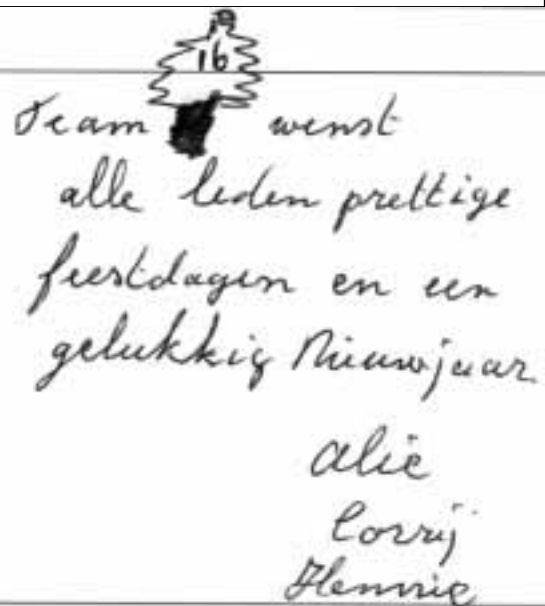 16
Team wenst
alle leden prettige
feestdagen en een
gelukkig Nieuwjaar
Alie
Corrij
Hennie